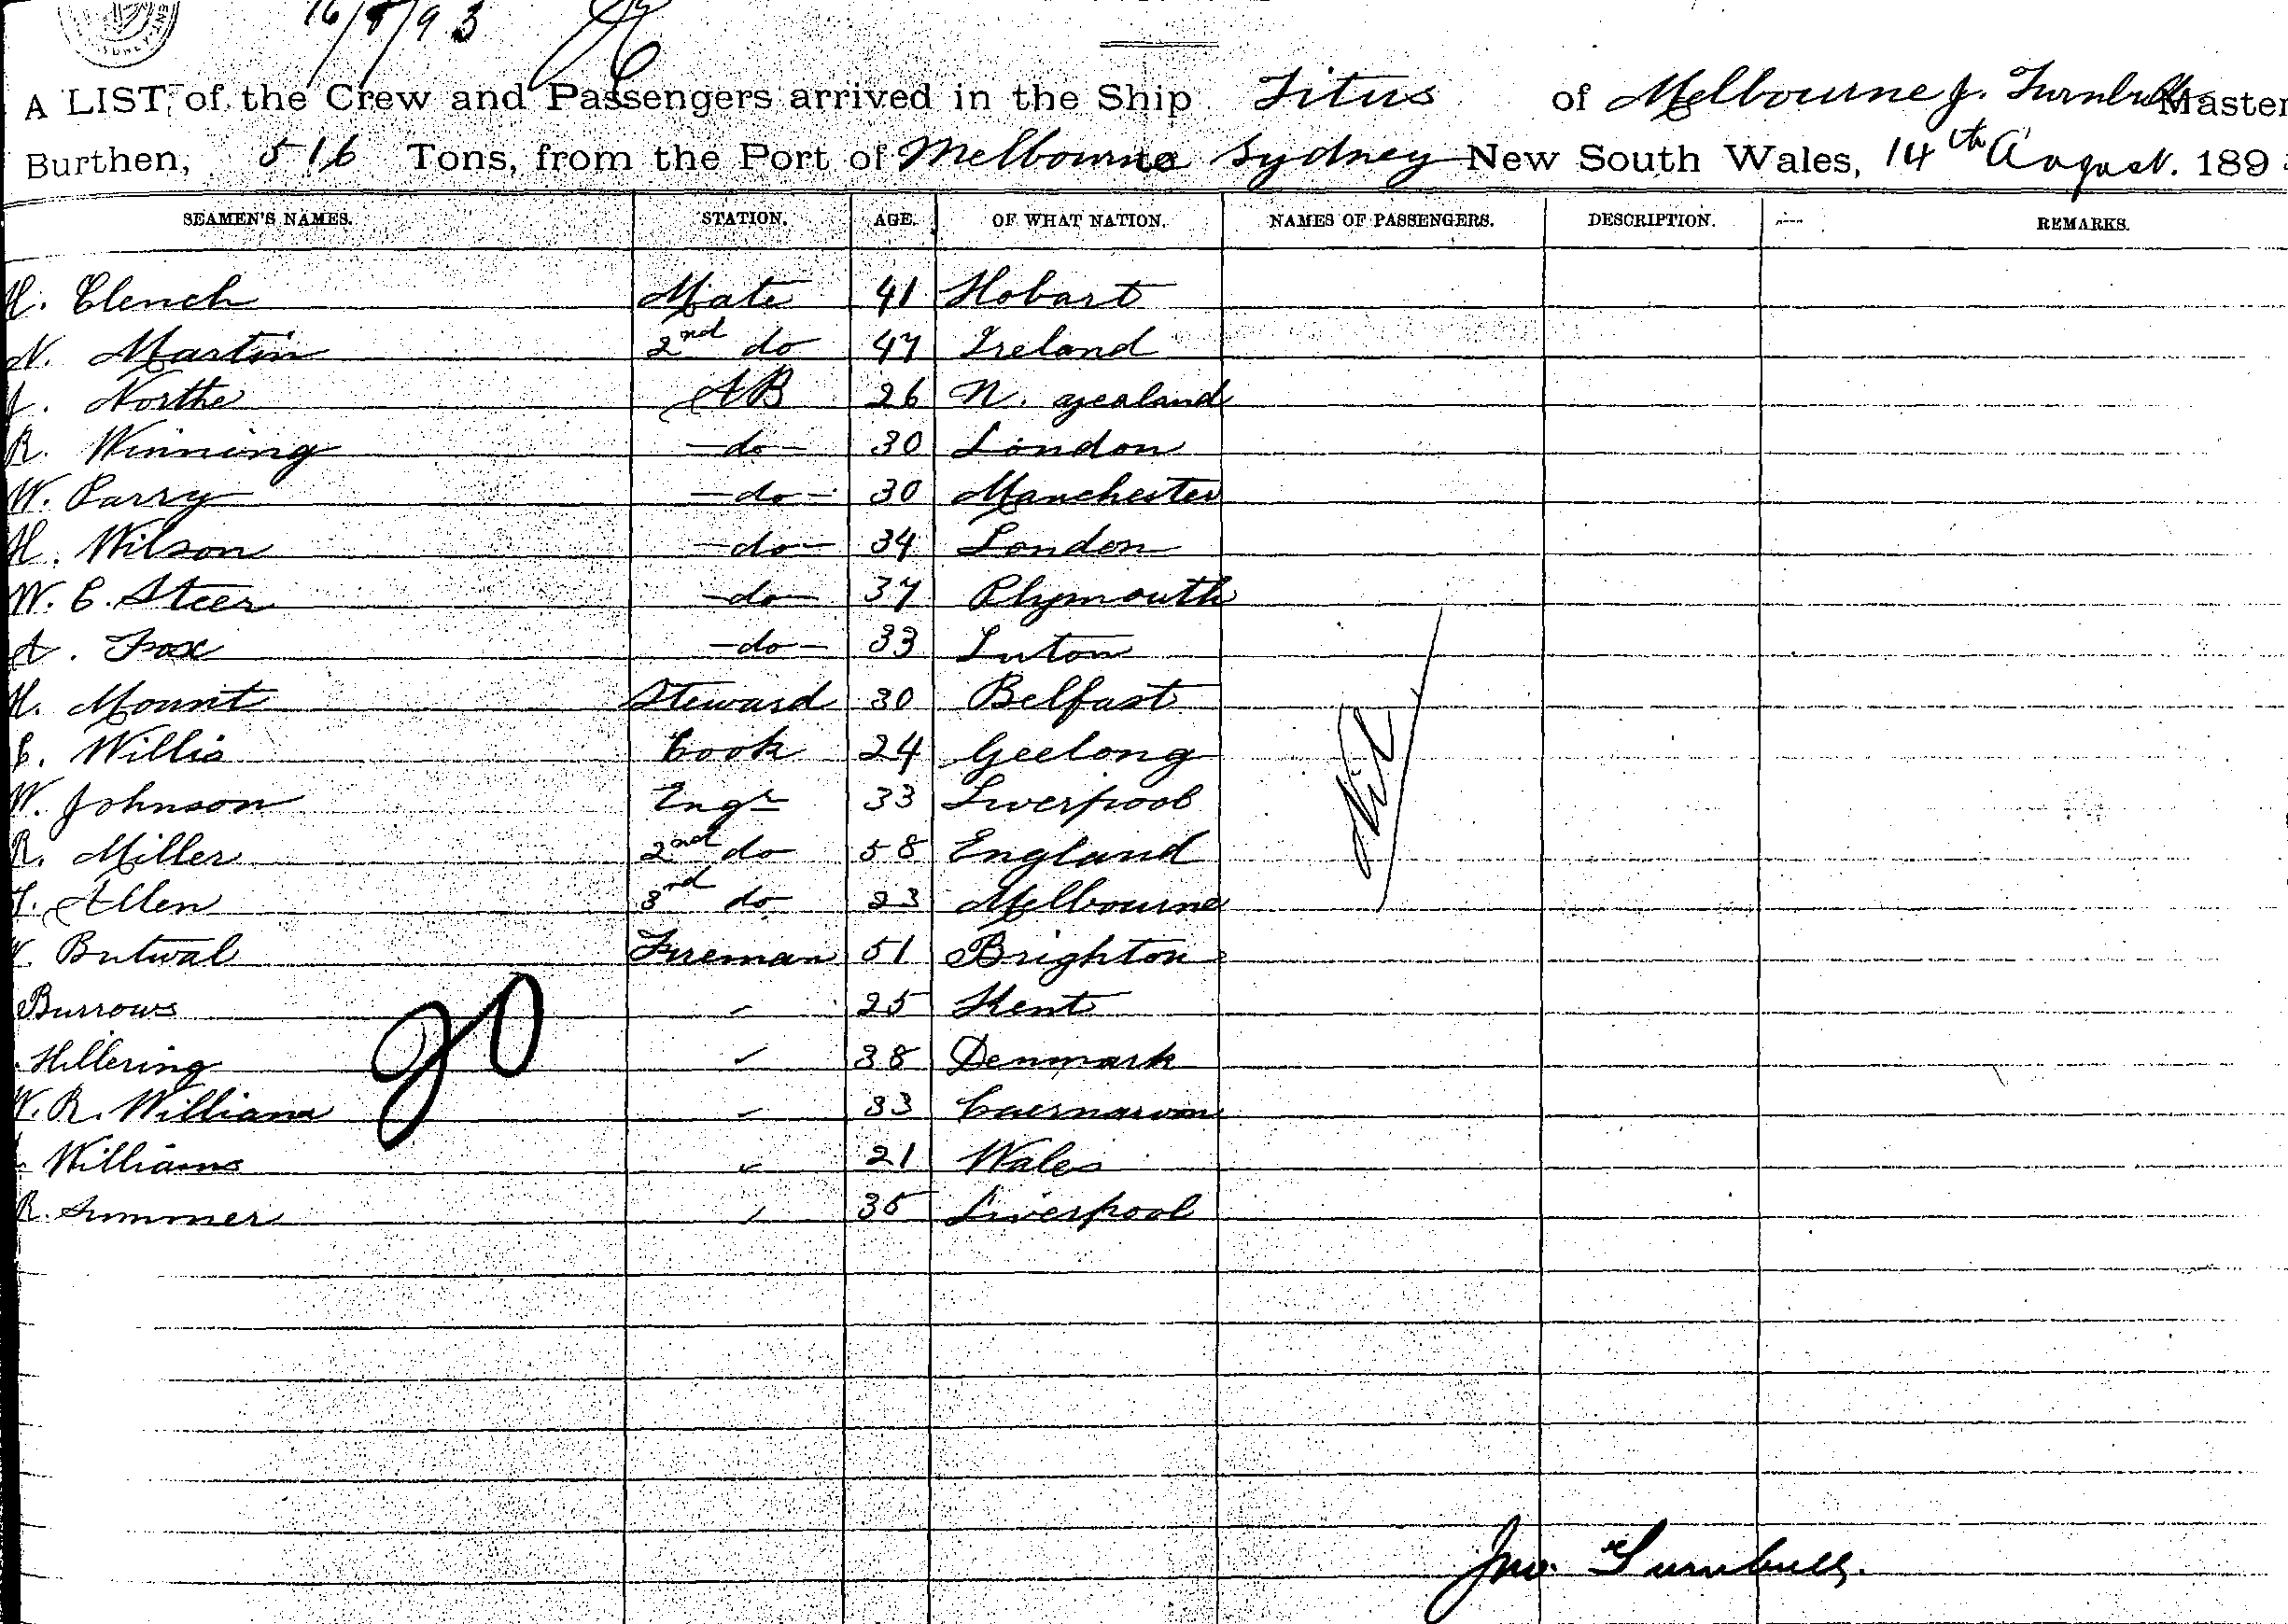 16/8/93
A LIST, of the Crew and Passengers arrived in the Ship Titus of Melbourne J. Turnbull Master
Burthen, 516 Tons, from the Port of Melbourne Sydney New South Wales, 14th August. 189
SEAMEN'S NAMES. STATION. AGE. OF WHAT NATION. NAMES OF PASSENGERS. DESCRIPTION. REMARKS.
H. Clench Mate 41 Hobart
N. Martin 2nd do 47 Ireland
J. Northe AB 26 N. Zealand
R. Winning do 30 London
W. Parry do 30 Manchester
H. Wilson do 34 London
W. C. Steer do 37 Plymouth
A. Fox do 33 Luton
H. Mount Steward 30 Belfast
C. Willis Cook 24 Geelong
W. Johnson Engr 33 Liverpool
R. Miller 2nd do 58 England
T. Allen 3rd do 23 Melbourne
Butwal Fireman 51 Brighton
Burrows 25 Kent
Hillering 38 Denmark
W. R. Williams 33 Caernarvon
Williams 21 Wales
R. Summer 35 Liverpool
Nil
20
Jno. Turnbull.